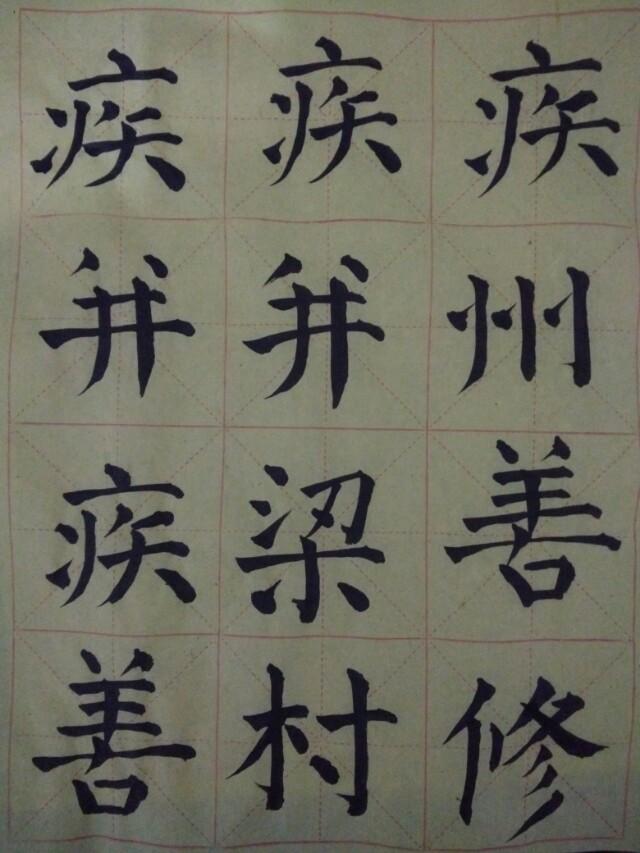 疾疾疾
并并州
疾梁善
善村修